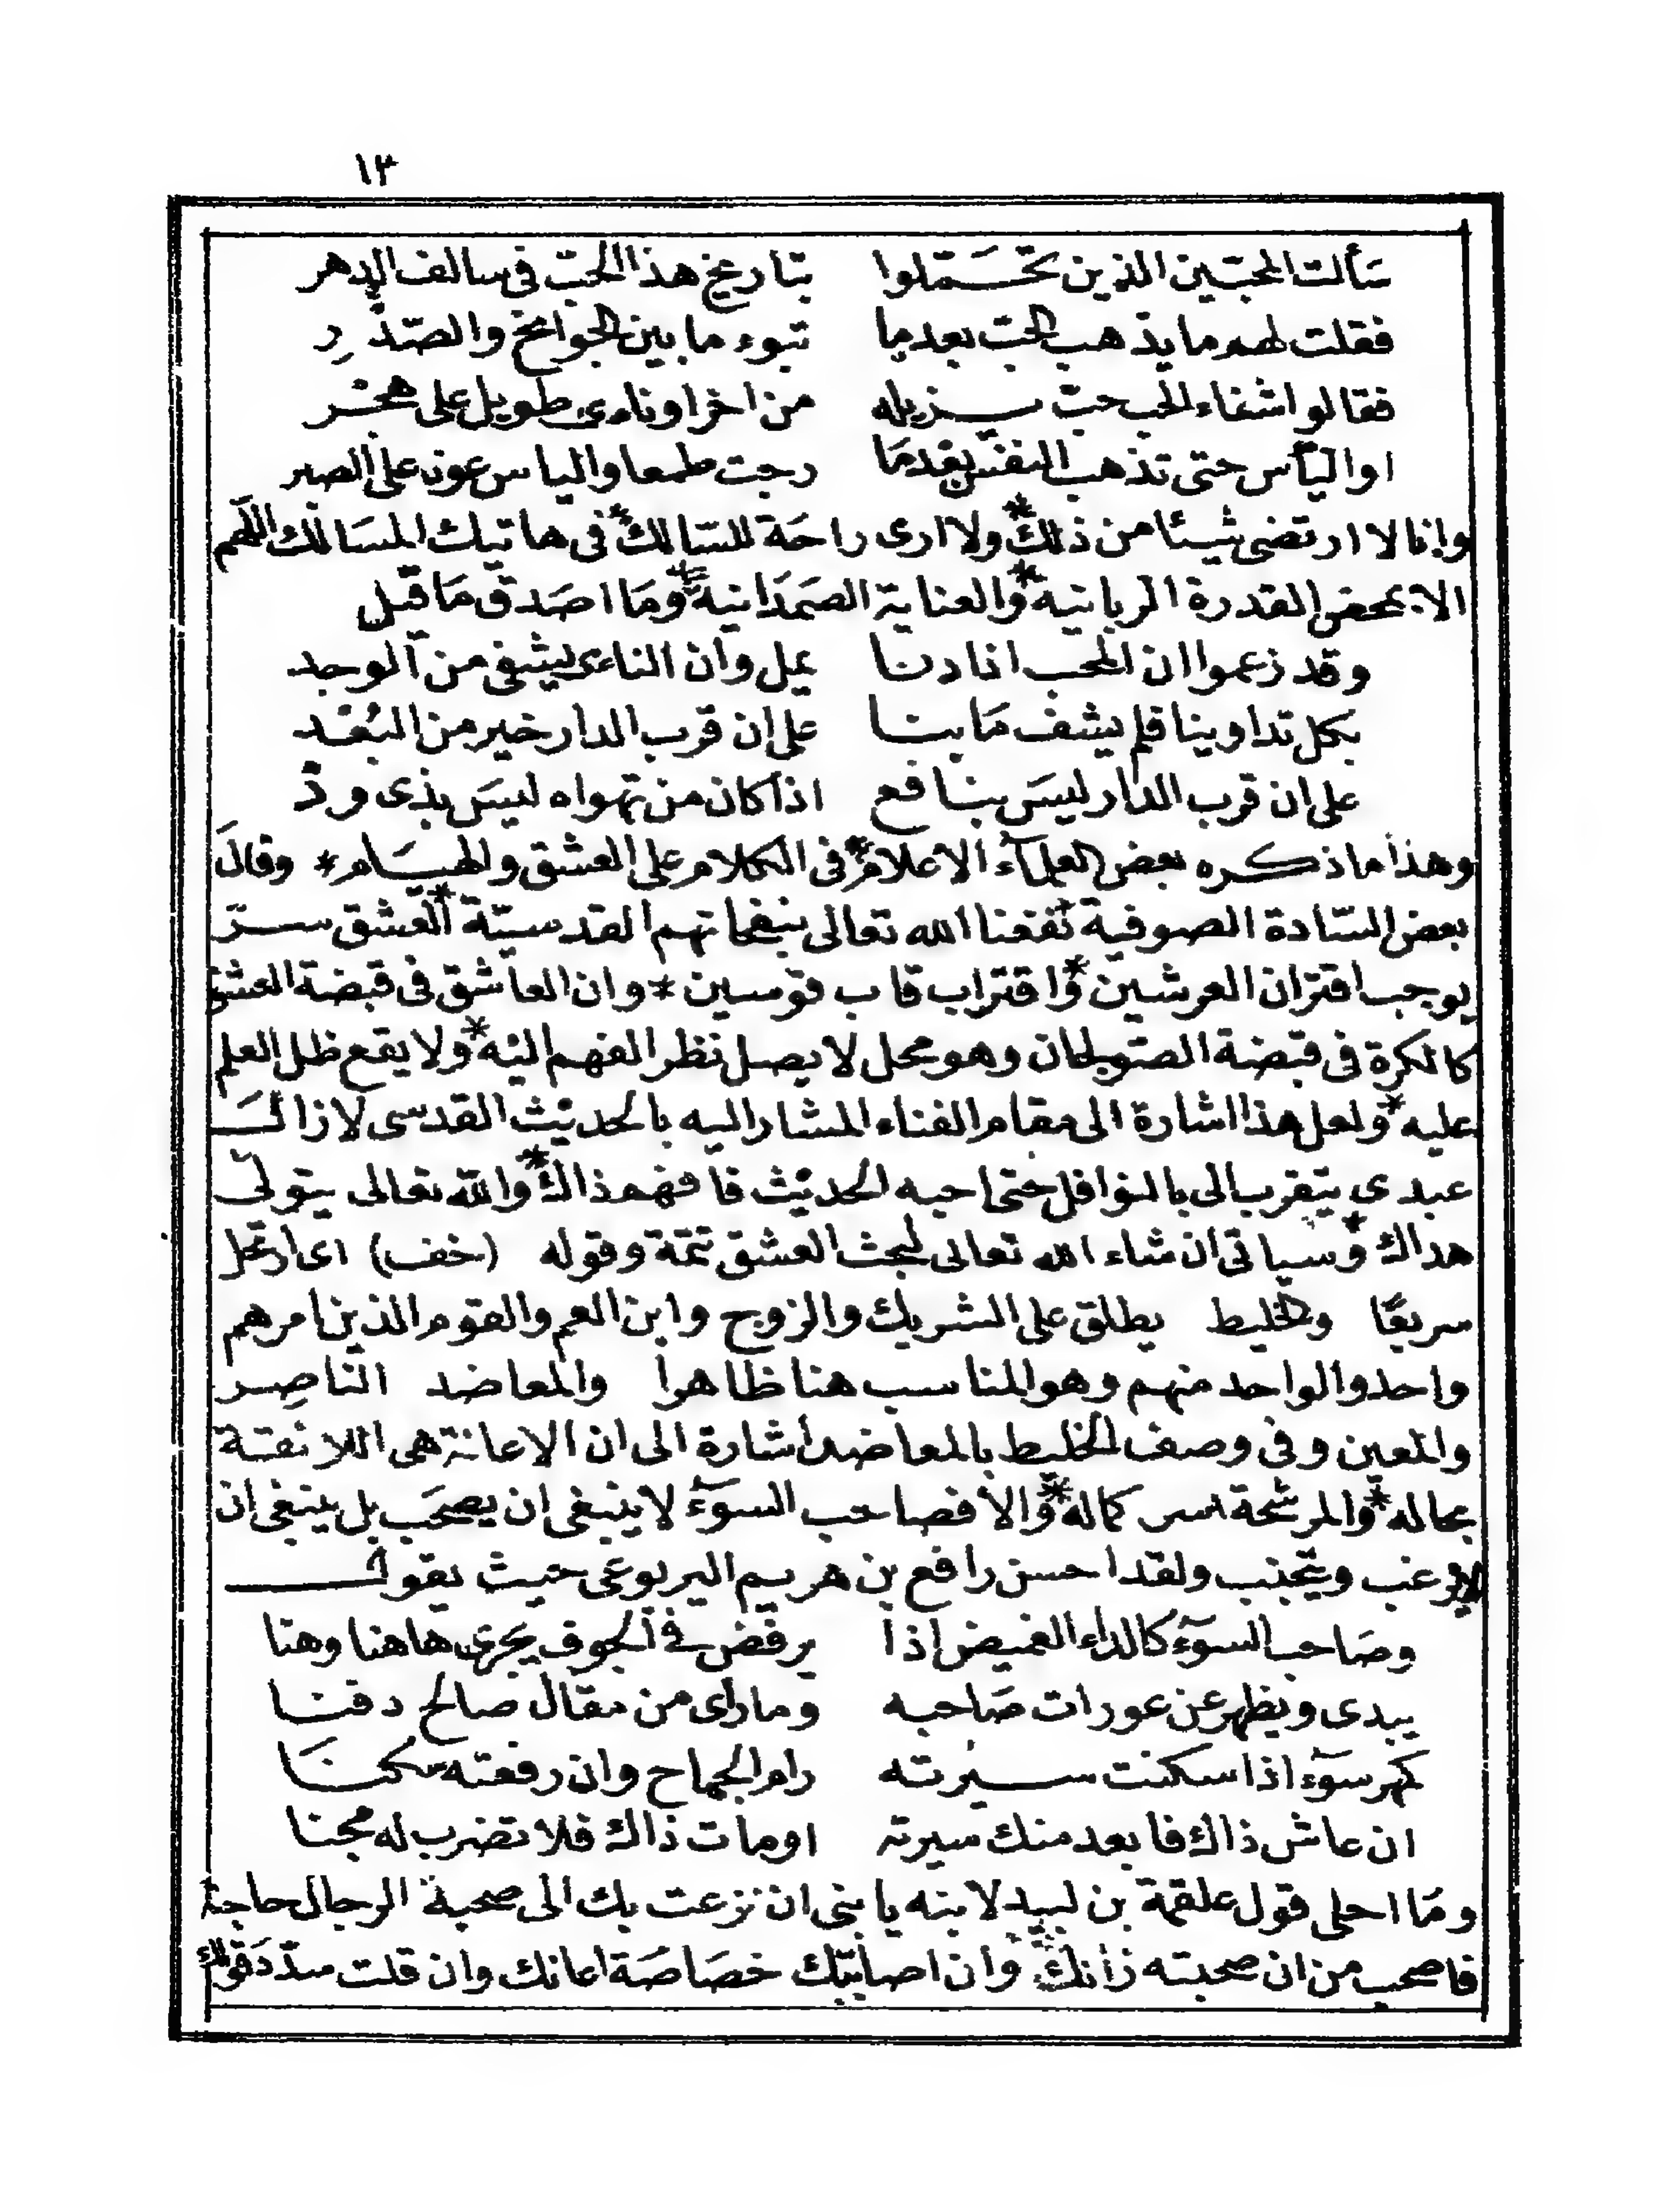 ١٣
سألت المحبين الذين تحسَّملوا تباريخ هذا الحبّ فى سالف الدهر
فقلت لهم ما يذهب الحبّ بعدما تبوء ما بين الجوانح والصّدرِ
فقالوا شفاء الحب حبّ يزيله من اخر او نأى طويل على هجر
او اليأس حتى تذهب النفس بعدمَا رجت طمعا والياس عون على الصبر
وانا لا ارتضى شيئا من ذلك * ولا ارى راحَة للسّالك * فى هاتيك المسَالك اللهم
الا بمحض القدرة الربانية * والعناية الصَمدَانية * ومَا اصَدق مَا قيل
وقد زعموا ان المحب اذا دنا يمل وان النائى يشفى من الوجد
بكل تداوينا فلم يشف مَا بنا على ان قرب الدار خير من البُعْد
على ان قرب الدار ليسَ بنافع اذا كان من تهواه ليسَ بذى ودّ
وهذا ما ذكره بعض العلمآء الاعلام * فى الكلام على العشق والهيَام * وقالَ
بعض السّادة الصوفية نفعنا الله تعالى بنفحاتهم القدسيّة * العشق سرّ
يوجب اقتران العرشين * واقتراب قاب قوسين * وان العاشق فى قبضة العشق
كالكرة فى قبضة الصّولجان وهو محل لا يصل نظر الفهم اليْه * ولا يقع ظل العلم
عليه * ولعل هذا اشارة الى مقام الفناء المشار اليه بالحديث القدسى لا زالَ
عبدى يتقرب الى بالنوافل حتى احبه الحديث فافهم ذاك * والله تعالى يتولى
هداك * وسياتى ان شاء الله تعالى لبحث العشق تتمة وقوله (خف) اى ارتحل
سريعًا والخليط يطلق على الشريك والزوج وابن العم والقوم الذين امرهم
واحد والواحد منهم وهو المناسب هنا ظاهرا والمعاضد الناصِر
والمعين وفى وصف الخليط بالمعاضد اشارة الى ان الاعانة هى اللائقة
بحاله * والمرشحة كماله * والا فصاحب السوءِ لا ينبغى ان يصحَب بل ينبغى ان
لا يرغب ويتجنب ولقد احسن رافع بن هريم اليربوعى حيث يقول
وصَاحب السوءِ كالداء الغميض اذا يرفض فى الجوف يجرى هاهنا وهنا
يبدى ويظهر عن عورات صَاحبه وما راى من مقال صالح دفنا
كمهر سوءِ اذا سكنت سيرته رام الجماح وان رفعته سكنَا
ان عاش ذاك فابعد منك سيرته او مات ذاك فلا تضرب له مجنا
ومَا احلى قول علقمة بن لبيد لابنه يا بنى ان نزعت بك الى صحبة الرجال حاجة
فاصحب من ان صحبته زانك وان اصابتك خصَاصَة اعانك وان قلت سدّدَ قولك